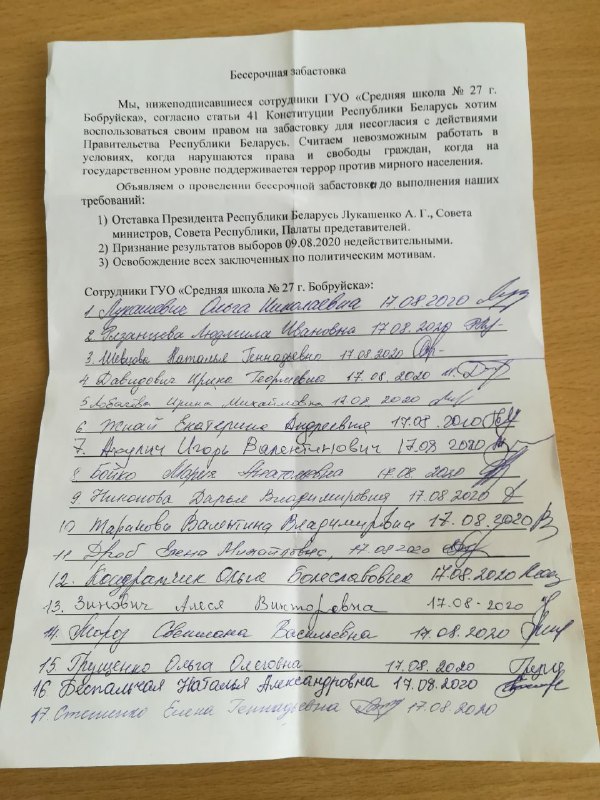 Бессрочная забастовка
Мы, нижеподписавшиеся сотрудники ГУО «Средняя школа № 27 г.
Бобруйска», согласно статьи 41 Конституции Республики Беларусь хотим
воспользоваться своим правом на забастовку для несогласия с действиями
Правительства Республики Беларусь. Считаем невозможным работать в
условиях, когда нарушаются права и свободы граждан, когда на
государственном уровне поддерживается террор против мирного населения.
Объявляем о проведении бессрочной забастовка до выполнения наших
требований:
1) Отставка Президента Республики Беларусь Лукашенко А. Г., Совета
министров, Совета Республики, Палаты представителей.
2) Признание результатов выборов 09.08.2020 недействительными.
3) Освобождение всех заключенных по политическим мотивам.
Сотрудники ГУО «Средняя школа № 27 г. Бобруйска»:
1 Лукашевич Ольга Николаевна 17.08.2020
2 Рязанцева Людмила Ивановна 17.08.2020
3. Шевцова Наталья Геннадьевна 17.08.2020
4 Давидович Ирина Георгиевна 17.08.2020
5 Ирина Михайловна 17.08.2020
6 Екатерина Андреевна 17.08.2020
7. Акулич Игорь Валентинович 17.08.2020
8 Бойко Мария Анатольевна 17.08.2020
9. Никонова Дарья Владимировна 17.08.2020
10 Валентина Владимировна 17.08.2020
11 Дроб Елена Михайловна, 17.08.2020
12. Кондратчик Ольга Болеславовна 17.08.2020
13. Зинович Алеся Викторовна 17.08.2020
14. Мороз Светлана Васильевна 17.08.2020
15 Грущенко Ольга Олеговна 17.08.2020
16 Беспалькая Наталья Александровна 17.08.2020
17. Стешенко Елена Геннадьевна 17.08.2020